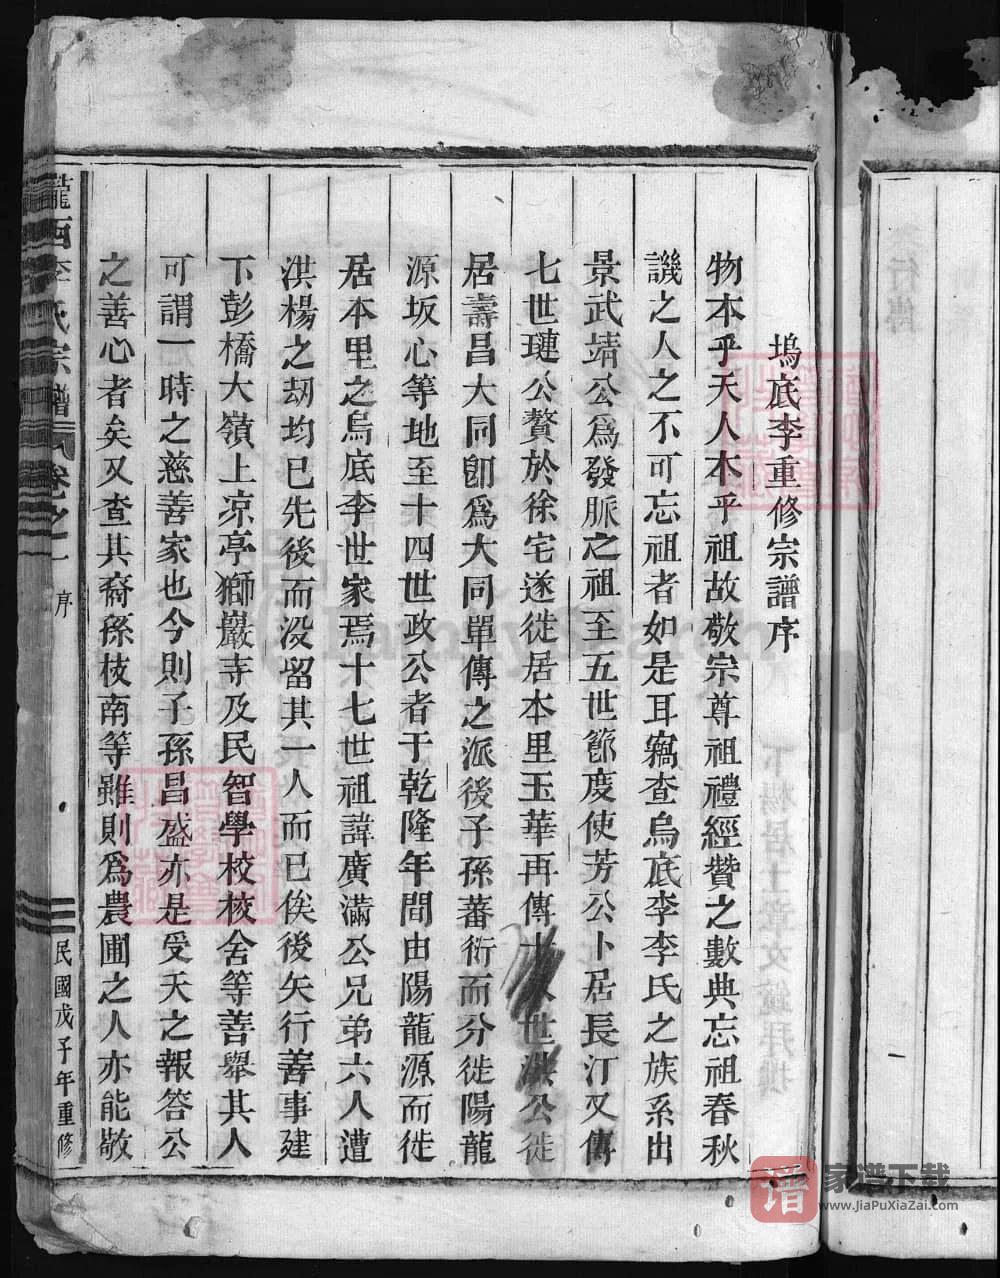 塢底李重修宗譜序
物本乎天人本乎祖故敬宗尊祖禮經贊之數典忘祖春秋
譏之人之不可忘祖者如是耳竊查烏底李李氏之族系出
景武靖公爲發脈之祖至五世節度使芳公卜居長汀又傳
七世璉公贅於徐宅遂徙居本里玉華再傳世洪公徙
居壽昌大同卽爲大同單傳之派後子孫蕃衍而分徙陽龍
源坂心等地至十四世政公者于乾隆年間由陽龍源而徙
居本里之烏底李世家焉十七世祖諱廣滿公兄弟六人遭
洪楊之刼均已先後而沒留其一人而已俟後矢行善事建
下彭橋大嶺上凉亭獅巖寺及民智學校校舍等善舉其人
可謂一時之慈善家也今則子孫昌盛亦是受天之報答公
之善心者矣又查其裔孫枝南等雖則爲農圃之人亦能敬
龍西李氏宗譜 卷之一 序 民國戊子年重修
FamilySearch
谱 家谱下载
www.JiaPuXiaZai.com